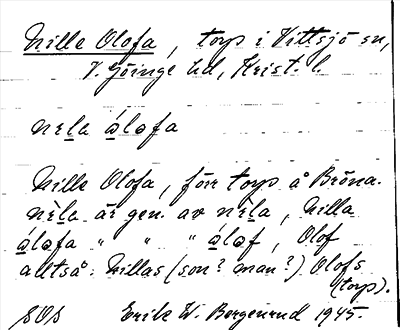 Nille Olofa, torp i Vittsjö sn,
V. Göinge hd, Krist. l.
nɛ̀la álofa
Nille Olofa, förr torp å Bröna.
nɛ̀la är gen. av nɛ̀la, Nilla
álofa " " " álof, Olof
alltså: Nillas (son? man?) Olofs
(torp).
SOS Erik W. Bergenrud 1945.